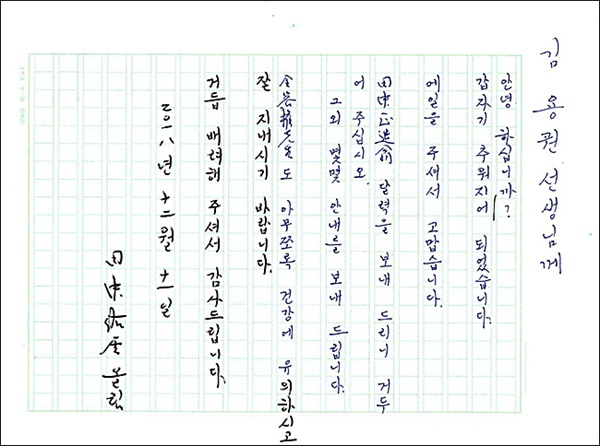 김 용권 선생님께
안녕 하십니까?
갑자기 추워지어 되었습니다.
메일을 주셔서 고맙습니다.
田中正造翁 달력을 보내 드리니 거두
어 주십시오.
그외 몇몇 안내를 보내 드립니다.
金容權先生도 아무쪼록 건강에 유의하시고
잘 지내시기 바랍니다.
거듭 배려해 주셔서 감사드립니다.
二〇一八년 十二월 十一일
田中 올림